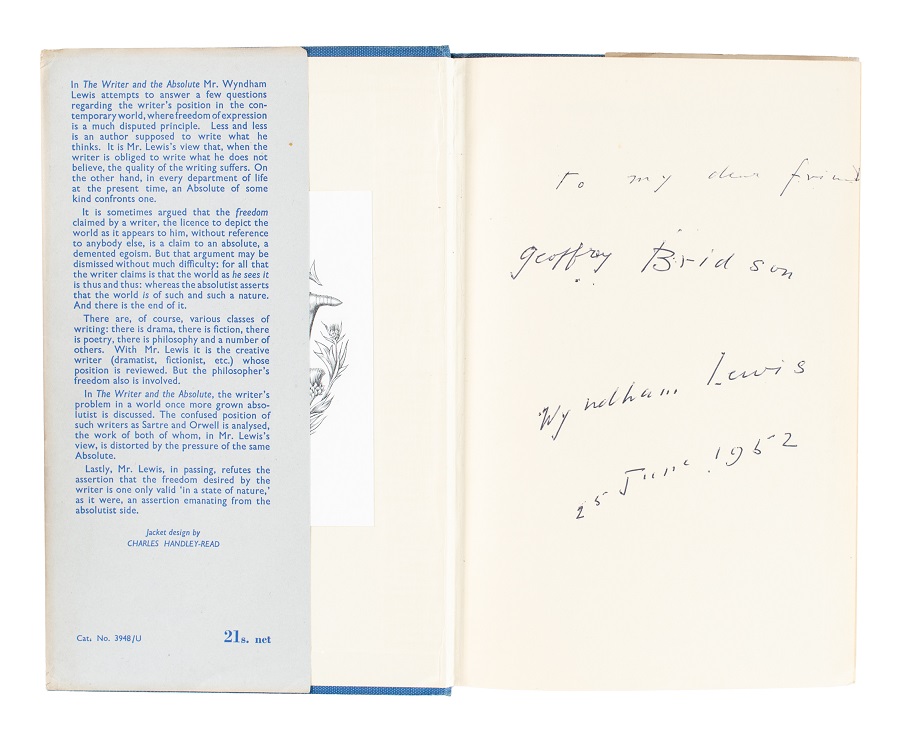 In The Writer and the Absolute Mr. Wyndham
Lewis attempts to answer a few questions
regarding the writer's position in the con-
temporary world, where freedom of expression
is a much disputed principle. Less and less
is an author supposed to write what he
thinks. It is Mr. Lewis's view that, when the
writer is obliged to write what he does not
believe, the quality of the writing suffers. On
the other hand, in every department of life
at the present time, an Absolute of some
kind confronts one.
It is sometimes argued that the freedom
claimed by a writer, the licence to depict the
world as it appears to him, without reference
to anybody else, is a claim to an absolute, a
demented egoism. But that argument may be
dismissed without much difficulty: for all that
the writer claims is that the world as he sees it
is thus and thus: whereas the absolutist asserts
that the world is of such and such a nature.
And there is the end of it.
There are, of course, various classes of
writing: there is drama, there is fiction, there
is poetry, there is philosophy and a number of
others. With Mr. Lewis it is the creative
writer (dramatist, fictionist, etc.) whose
position is reviewed. But the philosopher's
freedom also is involved.
In The Writer and the Absolute, the writer's
problem in a world once more grown abso-
lutist is discussed. The confused position of
such writers as Sartre and Orwell is analysed,
the work of both of whom, in Mr. Lewis's
view, is distorted by the pressure of the same
Absolute.
Lastly, Mr. Lewis, in passing, refutes the
assertion that the freedom desired by the
writer is one only valid 'in a state of nature,'
as it were, an assertion emanating from the
absolutist side.
Jacket design by
CHARLES HANDLEY-READ
Cat. No. 3948/U 21s. net
To my dear friend
Geoffrey Bridson
Wyndham Lewis
25 June 1952